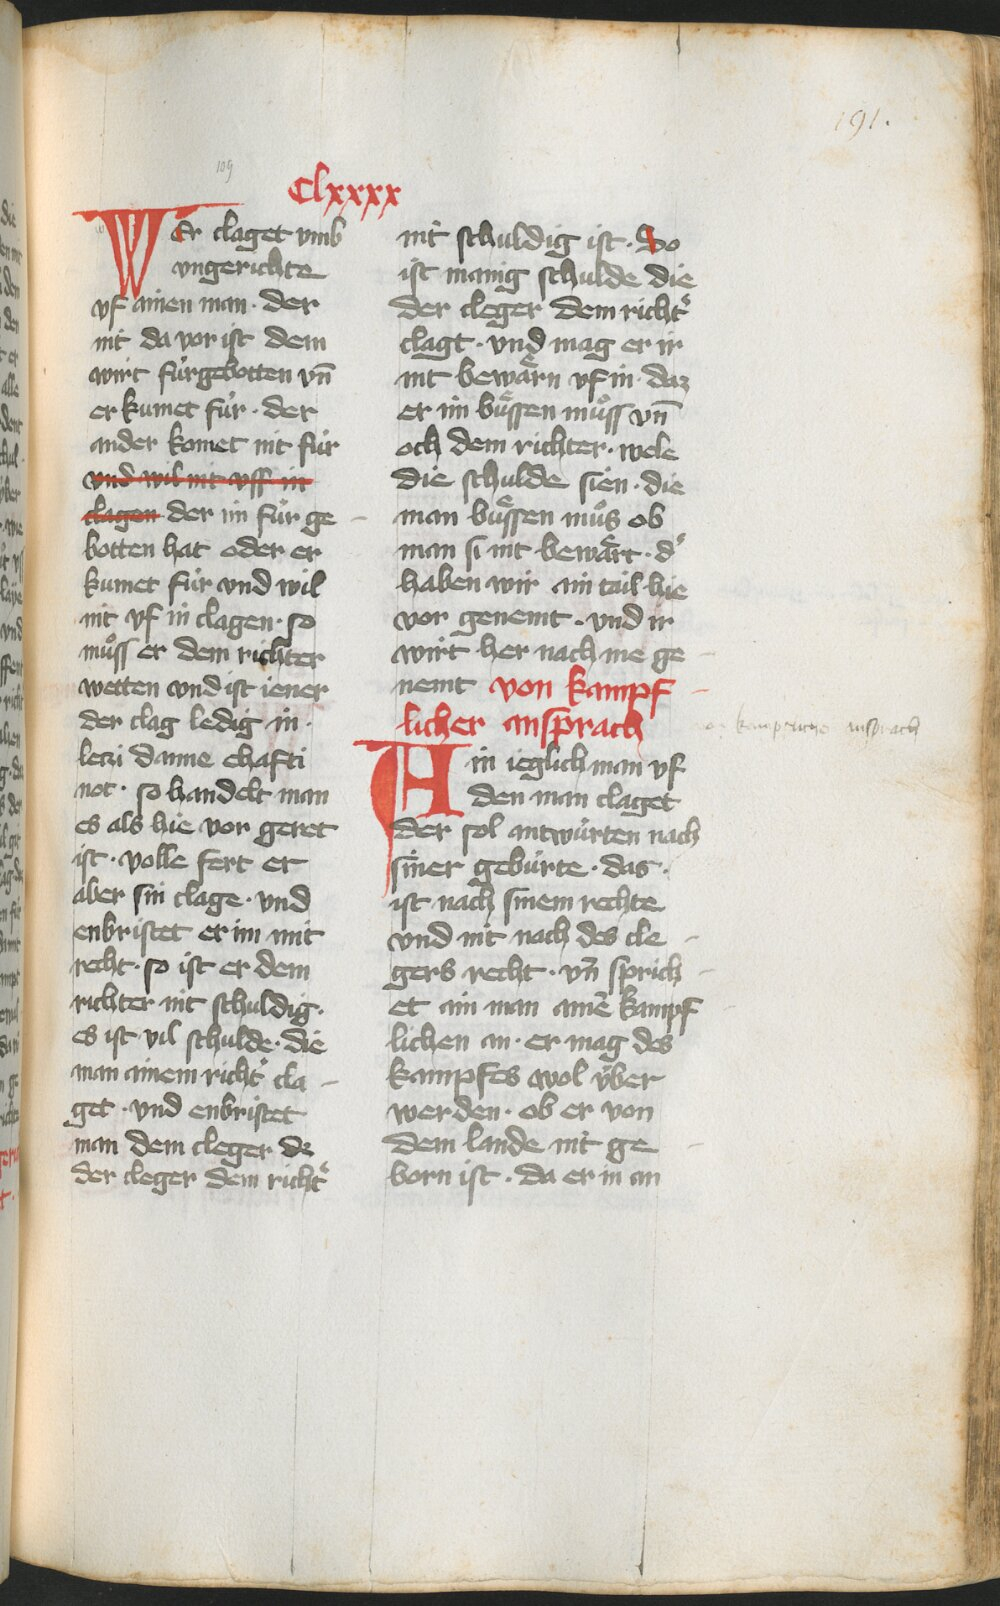 191.
109
Clxxxx
WEr claget vmb
vngerichte
vf ainen man · der
nit da vor ist dem
wirt fúrgebotten vn̄
er kumet fúr · der
ander komet nit fúr
vnd wil nit vff in
clagen der im fúr ge
botten hat oder er
kumet fúr vnd wil
nit vf in clagen · so
můss er dem richter
wetten vnd ist iener
der clag ledig in ·
leczi danne ehafti
not · so handelt man
es als hie vor geret
ist · volle fert er
aber sin clage · vnd
enbristet er im mit
recht · so ist er dem
richter nit schuldig ·
es ist vil schulde · die
man ainem richt͛ cla
get · vnd enbristet
man dem cleger dz
der cleger dem richt͛
nit schuldig ist · So
ist manig schulde die
der cleger dem richt͛
clagt · vnd mag er ir
nit bewärn vf in · daz
er im bůssen můss vn̄
och dem richter · wele
die schulde sien · die
man bůssen můs ob
man si nit bewärt · d͛
haben wir ain tail hie
vor genemt · vnd ir
wirt her nach me ge
nemt von kampf
licher ansprach
von kampflicher ansprach
Ain ieglich man vf
den man claget
der sol antwúrten nach
siner gebúrte · das ·
ist nach sinem rechte
vnd nit nach des cle
gers recht · vn̄ sprich
et ain man ainē kampf
lichen an · er mag des
kampfes wol úber
werden · ob er von
dem lande nit ge
born ist · da er in an